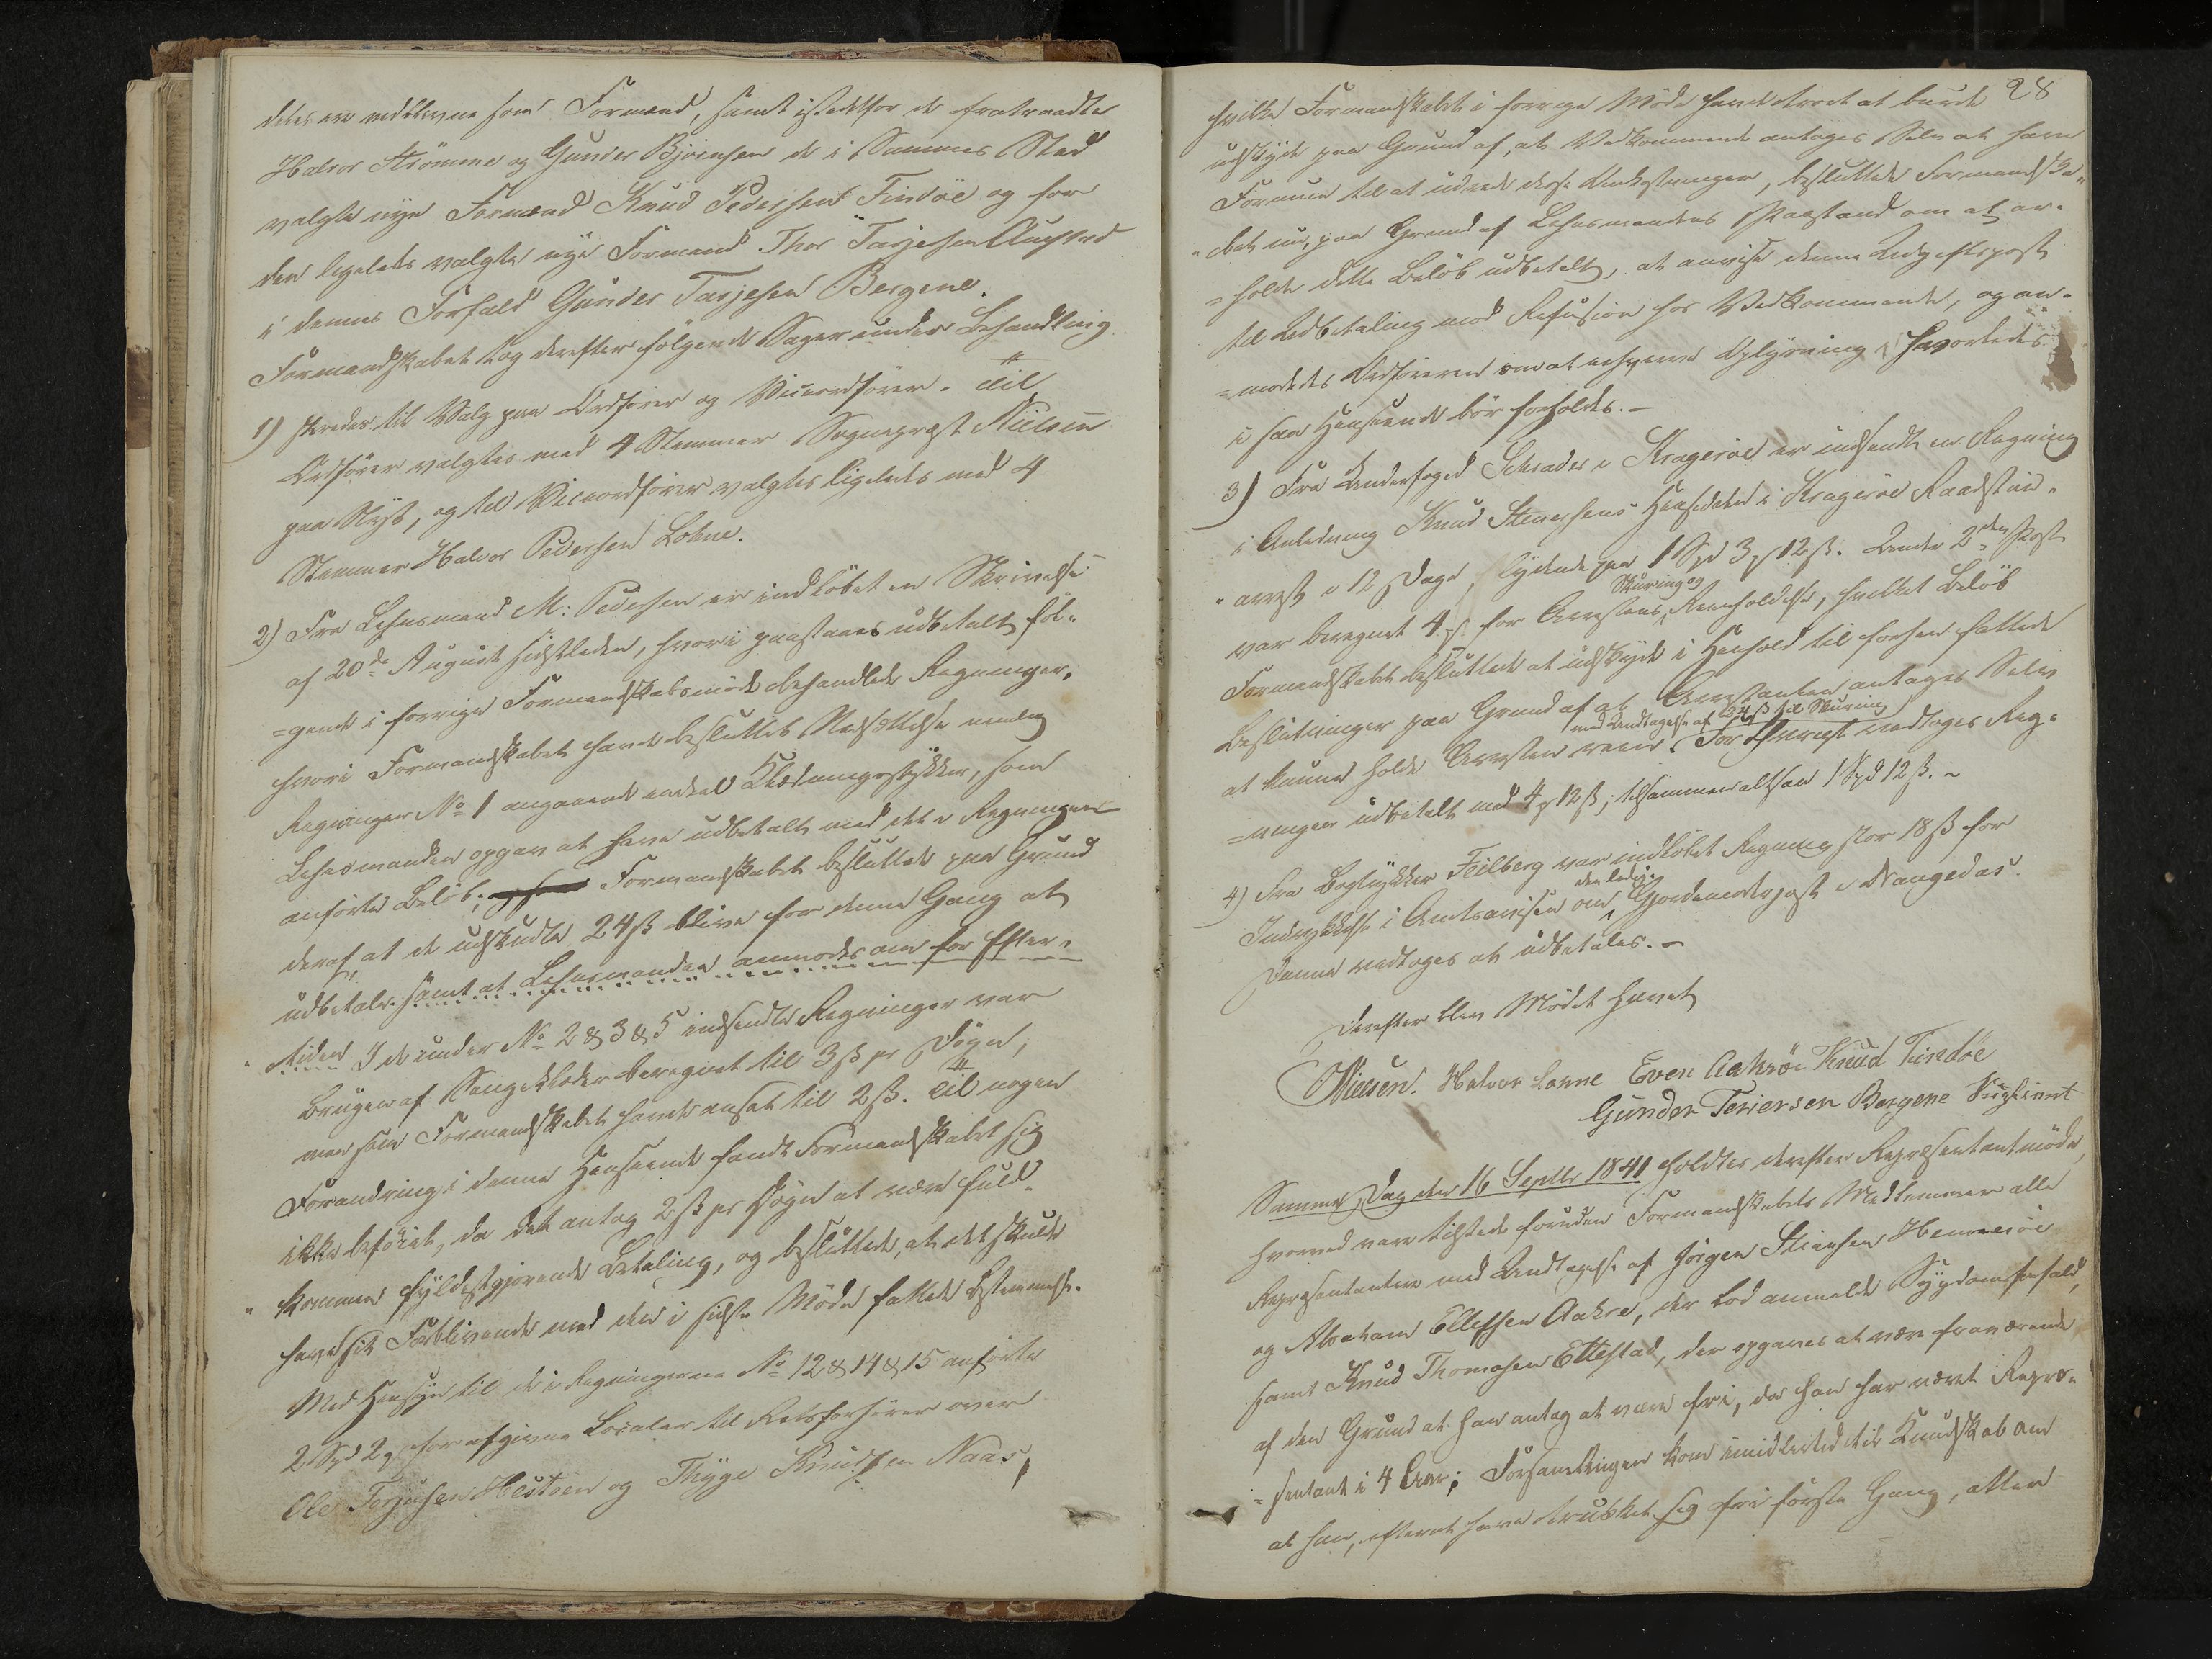 deles ere vedblevne som Formænd, samt istedetfor de fratraadte
Halvor Strömme og Gunder Björnsen de i Sammes Sted
valgte nye Formænd Knud Pedersen Tindöe og for
den ligeledes valgte nye Formand Thor Tarjesen Augstad
i dennes Forfald Gunder Tarjesen Bergene.
Formandskabet tog derefter fölgende Sager under Behandling
1) skredes til Valg paa Ordförer og Viceordförer. Til
Ordförer valgtes med 4 Stemmer Sognepræst Nielsen
paa Nyt, og til Viceordförer valgtes ligeledes med 4
Stemmer Halvor Pedersen Lohne.
2) Fra Lehnsmand M: Pedersen er indlöbet en Skrivelse
af 20de August sidstleden, hvori paastaaes udbetalt föl-
=gende i forrige Formandskabsmöde behandlede Regninger,
hvori Formandskabet havde besluttet Nedsættelse nemlig
Regningen No 1 angaaende endeel Klædningsstykker, som
Lehnsmanden opgav at have udbetalt med det i Regningen
anförte Belöb; Formandskabet besluttede paa Grund
deraf, at de udskudte 24 ß blive for denne Gang at
udbetale samt at Lehnsmanden anmodes om for Efter-
tiden I de under No 2 & 3 & 5 indsendte Regninger var
Brugen af Sengeklæder beregnet til 3 ß pr Dögn,
men som Formandskabet havde ansat til 2 ß. Til nogen
Forandring i denne Henseende fandt Formandskabet sig
ikke beföiet, da det antog 2 ß pr Dögn at være fuld-
"kommen fyldestgjörende Betaling, og besluttede, at det skulde
have sit Forblivende med den i sidste Möde fattede Bestemmelse.
Med Hensyn til de i Regningerne No 12 & 14 & 15 anförte
2 Spd 2 for afgivne Localer til Retsforhörer over
Ole Torjusen Hestöen og Thyge Knudsen Naas,
28
hvilke Formandskabet i forrige Möde havde troet at burde
udskyde paa Grund af, at Vedkommende antages Selv at have
Formue til at udrede disse Omkostninger, besluttede Formandska-
"bet nu, paa Grund af Lehnsmandens Paastand om at er-
=holde dette Belöb udbetalt, at anvise denne Udgiftspost
til Udbetaling mod Refusion hos Vedkommende, og an-
=modedes Ordföreren om at erhverve Oplysning, hvorledes
i saa Henseende bör forholdes.-
3) Fra Underfoged Schrader i Krageröe er indsendt en Regning
i Anledning Knud Stenersens Hensidden i Kragerøe Raadstue-
"arrest i 12 Dage, lydende paa 1 Spd 3 12 ß. Under 2den Post
var beregnet 4 for Arrestens Skuring og Reenholdelse, hvilket Belöb
Formandskabet besluttede at udskyde i Henhold til forhen fattede
Beslutninger paa Grund af at Arrestanten antages Selv
at kunne holde Arresten reen. med Undtagelse af 24 ß til Skuring For Övrigt vedtoges Reg-
=ningen udbetalt med 4 12 ß; tilsammen altsaa 1 Spd 12 ß. -
4) Fra Bogtrykker Feilberg var indlöbet Regning stor 18 ß for
Indrykkelse i Amtsavisen om den ledige Gjordemoderpost i Drangedal.
Denne vedtoges at udbetales. -
Derefter blev Mödet hævet
Nielsen. Halvor Lonne Even Aakröe Knud Tindöe
Gunder Terjersen Bergene
Samme Dag den 16 Septbr 1841 holdtes derefter Repræsentantmöde,
hvorved vare tilstede foruden Formandskabets Medlemmer alle
Repræsentanter med Undtagelse af Jörgen Stiansen Henneröe
og Abraham Ellefsen Aakre, der lod anmelde Sygdomsforfald,
samt Knud Thomasen Ettestad, der opgaves at være fraværende
af den Grund at han antog at være fri, da han har været Repræ-
=sentant i 4 Aar; Forsamlingen kom imidlertid til Kundskab om
at han, efterat have trukket sig fri förste Gang, atter